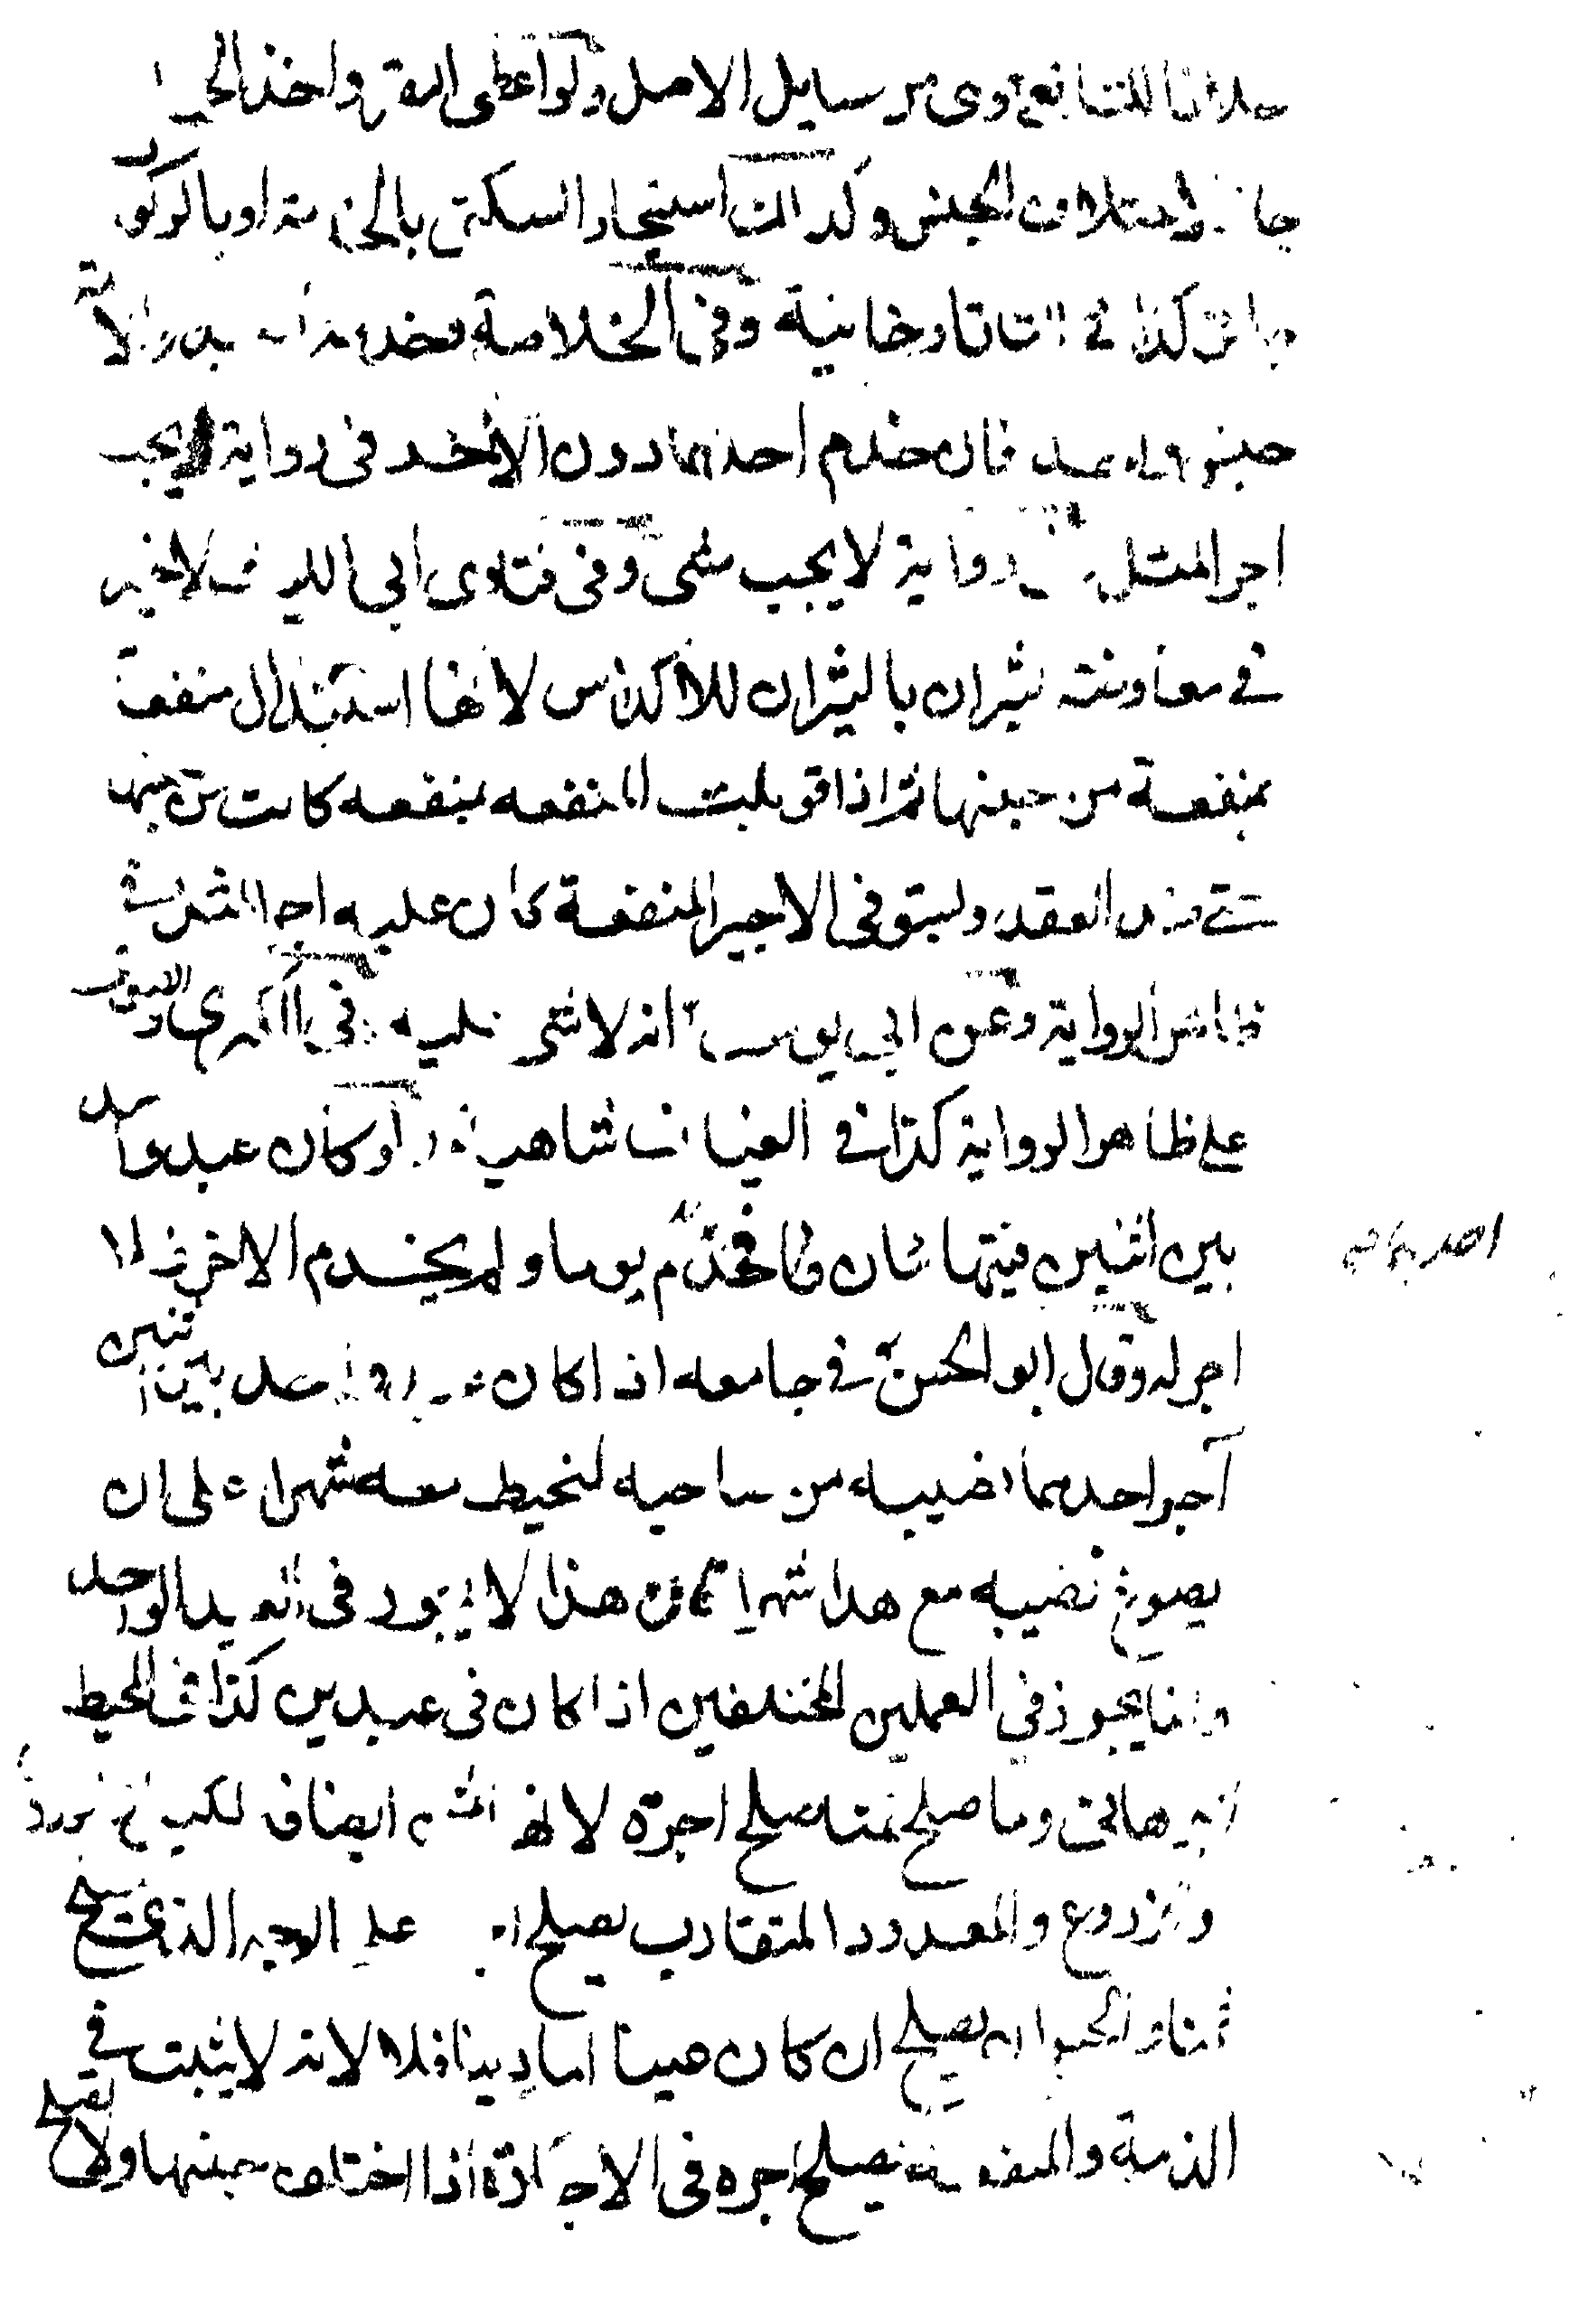 خلافا للشافعي وهي من مسايل الاصل ولو اعطى البقر واخذ الحمار
جاز لاختلاف الجنس وكذلك استيجار السكنى بالخدمة او بالركوب
جائز كذا في التاتارخانية وفي الخلاصة
فان خدم احدهما دون الاخر في رواية يجب
اجر المثل وفي رواية لا يجب شئ وفي فتاوى ابي الليث لا خير
في معاونته ثيران بالثيران للاكداس لانها استبدال منفعة
بمنفعة من جنسها ثم اذا قوبلت المنفعه بمنفعه كانت من جنسها
حتى فسد العقد واستوفى الاجير المنفعة كان عليه اجر المثل في
ظاهر الرواية وعن ابي يوسف انه لا شئ عليه وفي الكبرى والفتوى
على ظاهر الرواية كذا في الغياث لو كان عبد واحد
بين اثنين فتهايئان فيها فخدم يوما ولم يخدم الاخر فلا
اجر له وقال ابو الحسن في جامعه اذا كان عبد واحد بين اثنين
آجر احدهما نصيبه من صاحبه ليخيط معه شهرا على ان
يصوغ نصيبه مع هذا شهرا فان هذا لا يجوز في العبد الواحد
وانما يجوز في العملين المختلفين اذا كان في عبدين كذا في المحيط
البرهاني وما صلح ثمنا صلح اجرة لانها ثمن ايضا فالمكيل والموزون
والمزروع والمعدود المتقارب يصلح اجرة على الوجه الذي يصلح
ثمنا والحيوان يصلح ان كان عينا اما دينا فلا لانه لا يثبت في
الذمة والمنفعة تصلح اجره في الاجارة اذا اختلف جنسها ولا تصلح